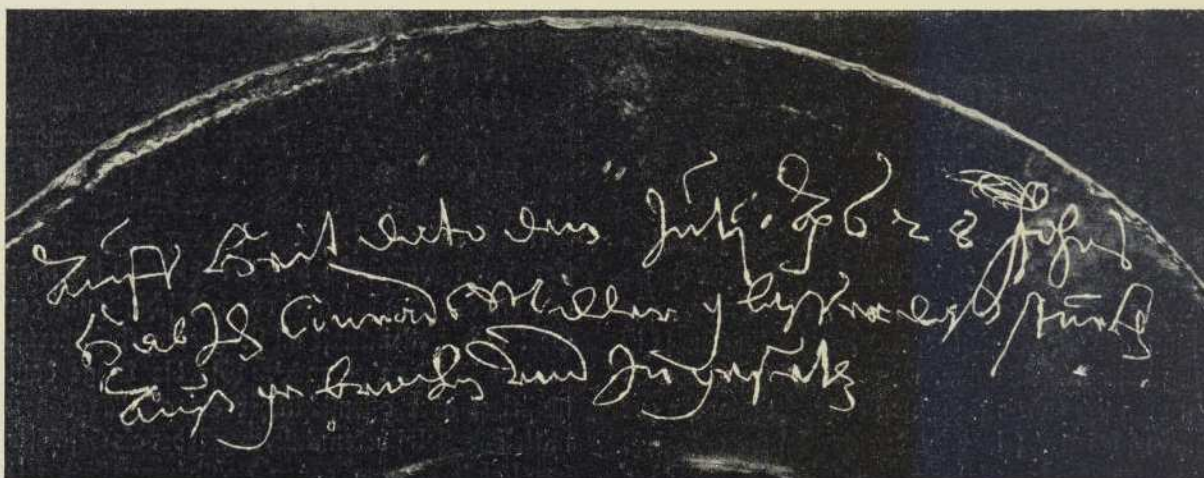 Auff Heit dato den Julij. 1628 Johr
Hab Ich Conrad Miller stuckh
Auß gebrochen Und Ingesetzt